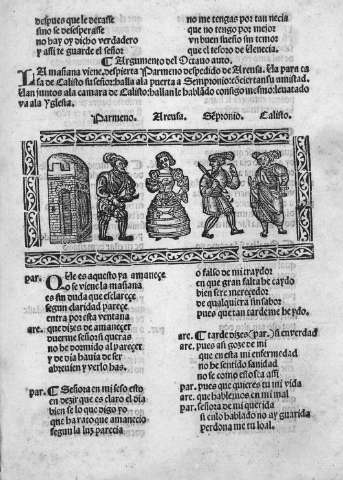 despues que le verasse
sino se desesperasse
no hay oy dicho verdadero
y assi te guarde el señor
no me tengas por tan necia
que no tengo por mejor
vn buen sueño sin temor
que el tesoro de Venecia.
¶ Argumento del Octauo auto.
LA mañana viene, despierta Parmeno despedido de Areusa. Va para ca
sa de Calisto su señor: halla ala puerta a Sempronio: cōciertan su amistad.
Van juntos ala camara de Calisto: hallan le hablādo consigo mesmo: leuātado
va ala yglesia.
Parmeno. Areusa. Sēpronio. Calisto.
par. Que es aquesto ya amanece
o se viene la mañana
es sin duda que esclarece
segun claridad parece
entra por esta ventana
are. que dizes de amanecer
duerme señor si queras
no he dormido al parecer
y de dia hauia de ser
abreuien y verlo has.
par. ¶ Señora en mi seso esto
en dezir que es claro el dia
bien se lo que digo yo
que ha rato que amanecio
segun la luz parecia
o falso de mi traydor
en que gran falta he caydo
bien sere merecedor
de qualquiera sinsabor
pues que tan tarde me he ydo.
are. ¶ tarde dizes (par.) si en verdad
are. pues assi goze de mi
que en esta mi enfermedad
no he sentido sanidad
no se como esto sca assi
par. pues que quieres tu mi vida
are. que hablemos en mi mal
par. señora de mi querida
si en lo hablado no ay guarida
perdona me tu loal.